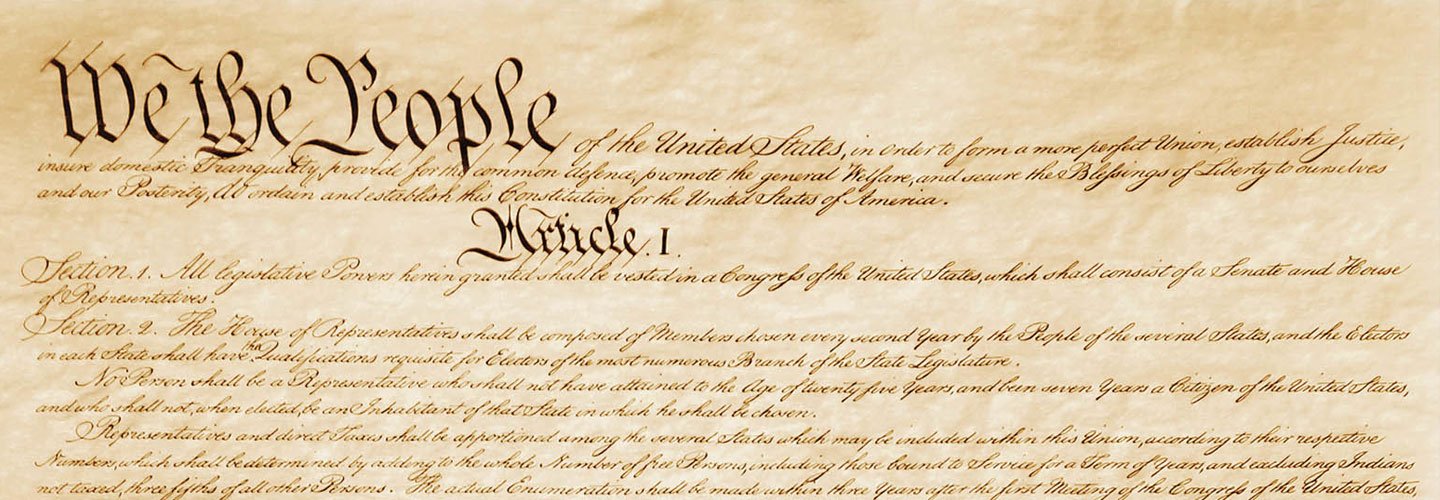 We the People of the United States, in order to form a more perfect Union, establish Justice,
insure domestic Tranquility, provide for the common defence, promote the general Welfare, and secure the Blessings of Liberty to ourselves
and our Posterity, do ordain and establish this Constitution for the United States of America.
Article. I.
Section. 1. All legislative Powers herein granted shall be vested in a Congress of the United States, which shall consist of a Senate and House
of Representatives.
Section. 2. The House of Representatives shall be composed of Members chosen every second Year by the People of the several States, and the Electors
in each State shall have the Qualifications requisite for Electors of the most numerous Branch of the State Legislature.
No Person shall be a Representative who shall not have attained to the Age of twenty five Years, and been seven Years a Citizen of the United States,
and who shall not, when elected, be an Inhabitant of that State in which he shall be chosen.
Representatives and direct Taxes shall be apportioned among the several States which may be included within this Union, according to their respective
Numbers, which shall be determined by adding to the whole Number of free Persons, including those bound to Service for a Term of Years, and excluding Indians
not taxed, three fifths of all other Persons. The actual Enumeration shall be made within three Years after the first Meeting of the Congress of the United States,